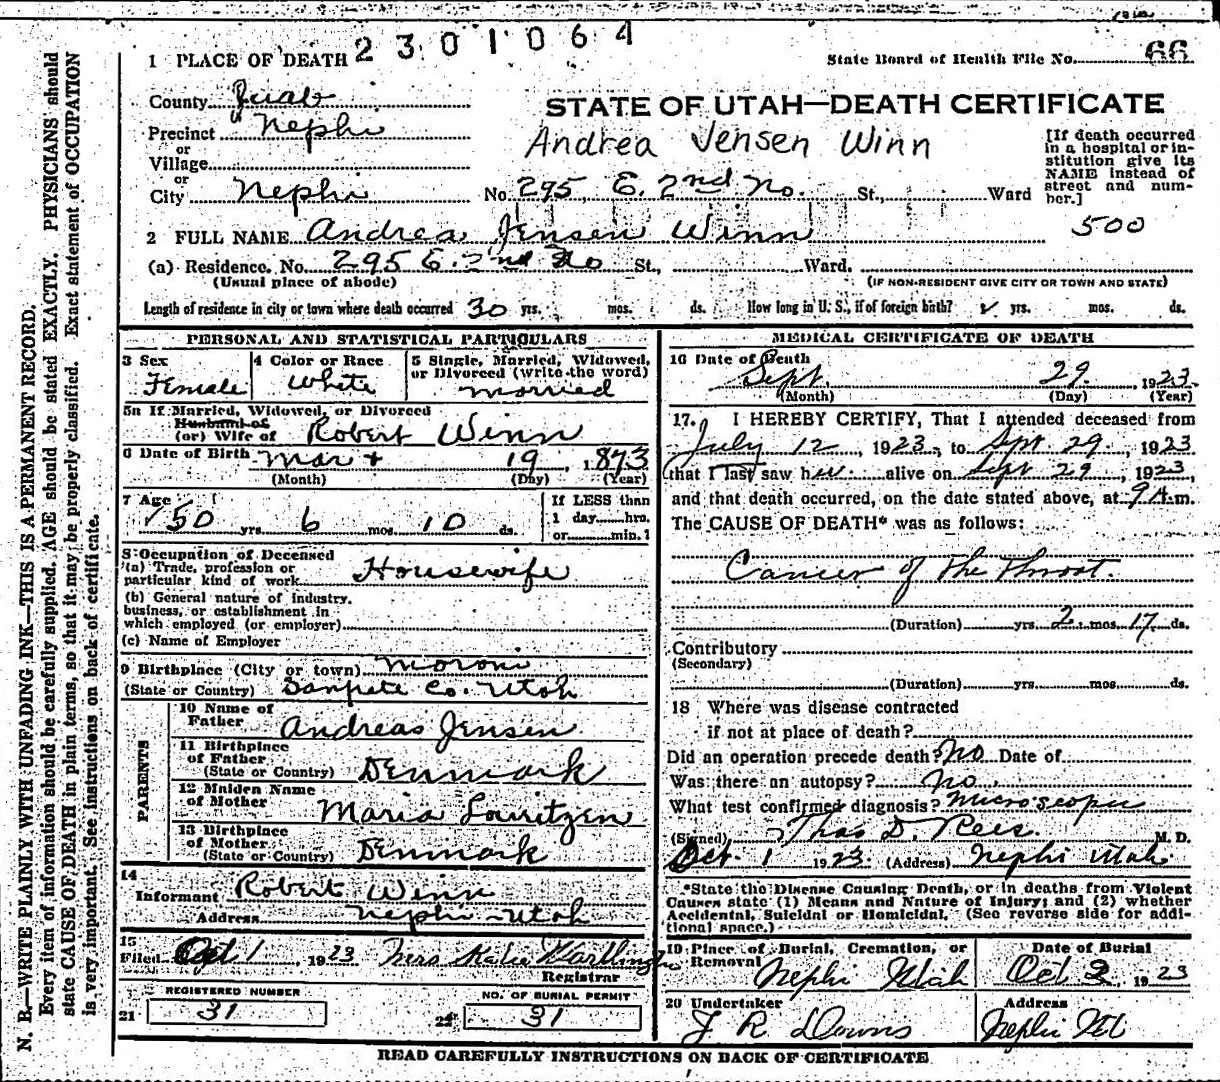 2301064
1 PLACE OF DEATH
State Board of Health File No. 66
County Juab
STATE OF UTAH—DEATH CERTIFICATE
Precinct Nephi
Andrea Jensen Winn
or
Village
or
City Nephi
No. 295 E. 2nd No. St., Ward
[If death occurred
in a hospital or in-
stitution give its
NAME instead of
street and num-
ber.]
500
2 FULL NAME Andrea Jensen Winn
(a) Residence. No. 295 E. 2nd No St., Ward.
(Usual place of abode)
(IF NON-RESIDENT GIVE CITY OR TOWN AND STATE)
Length of residence in city or town where death occurred 30 yrs. mos. ds. How long in U. S., if of foreign birth? yrs. mos. ds.
PERSONAL AND STATISTICAL PARTICULARS
3 Sex
Female
4 Color or Race
White
5 Single, Married, Widowed,
or Divorced (write the word)
married
5a If Married, Widowed, or Divorced
Husband of
(or) Wife of Robert Winn
6 Date of Birth Mar 19, 1873
(Month) (Day) (Year)
7 Age
50 yrs. 6 mos. 10 ds.
If LESS than
1 day hrs.
or min.?
8 Occupation of Deceased
(a) Trade, profession or
particular kind of work Housewife
(b) General nature of industry,
business, or establishment in
which employed (or employer)
(c) Name of Employer
9 Birthplace (City or town) Moroni
(State or Country) Sanpete Co. Utah
PARENTS
10 Name of
Father Andreas Jensen
11 Birthplace
of Father
(State or Country) Denmark
12 Maiden Name
of Mother Maria Lauritzen
13 Birthplace
of Mother
(State or Country) Denmark
14
Informant Robert Winn
Address Nephi Utah
15
Filed Oct 1, 1923 Mrs Katie
Registrar
REGISTERED NUMBER
21 31
NO. OF BURIAL PERMIT
22 31
MEDICAL CERTIFICATE OF DEATH
16 Date of Death
Sept. 29, 1923
(Month) (Day) (Year)
17. I HEREBY CERTIFY, That I attended deceased from
July 12, 1923, to Sept. 29, 1923
that I last saw her alive on Sept 29, 1923,
and that death occurred, on the date stated above, at 9 A.m.
The CAUSE OF DEATH* was as follows:
Cancer of the Throat.
(Duration) yrs. 2 mos. 17 ds.
Contributory
(Secondary)
(Duration) yrs. mos. ds.
18 Where was disease contracted
if not at place of death?
Did an operation precede death? No Date of
Was there an autopsy? No.
What test confirmed diagnosis? Microscopic
(Signed) Thos D. Rees. M. D.
Oct. 1 1923. (Address) Nephi Utah
*State the Disease Causing Death, or in deaths from Violent
Causes state (1) Means and Nature of Injury; and (2) whether
Accidental, Suicidal or Homicidal. (See reverse side for addi-
tional space.)
19 Place of Burial, Cremation, or
Removal
Nephi Utah
Date of Burial
Oct 2, 1923
20 Undertaker
J R Downs
Address
Nephi Ut
READ CAREFULLY INSTRUCTIONS ON BACK OF CERTIFICATE
N. B.—WRITE PLAINLY WITH UNFADING INK—THIS IS A PERMANENT RECORD.
Every item of information should be carefully supplied. AGE should be stated EXACTLY. PHYSICIANS should
state CAUSE OF DEATH in plain terms, so that it may be properly classified. Exact statement of OCCUPATION
is very important. See instructions on back of certificate.